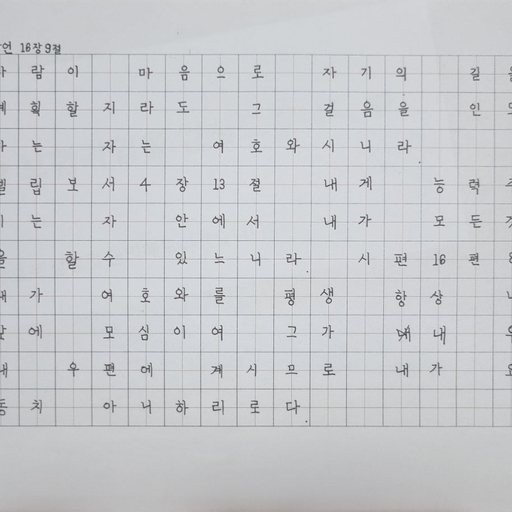 언 16장9절
사람이 마음으로 자기의 길을
계획할지라도 그 걸음을 인도
하는 자는 여호와시니라
빌립보서 4장 13절 내게 능력주
시는 자 안에서 내가 모든것
을 할수 있느니라 시편 16편 8
내가 여호와를 평생 항상 내
앞에 모심이여 그가 내 우
내 우편에 계시므로 내가 요
동치 아니하리로다